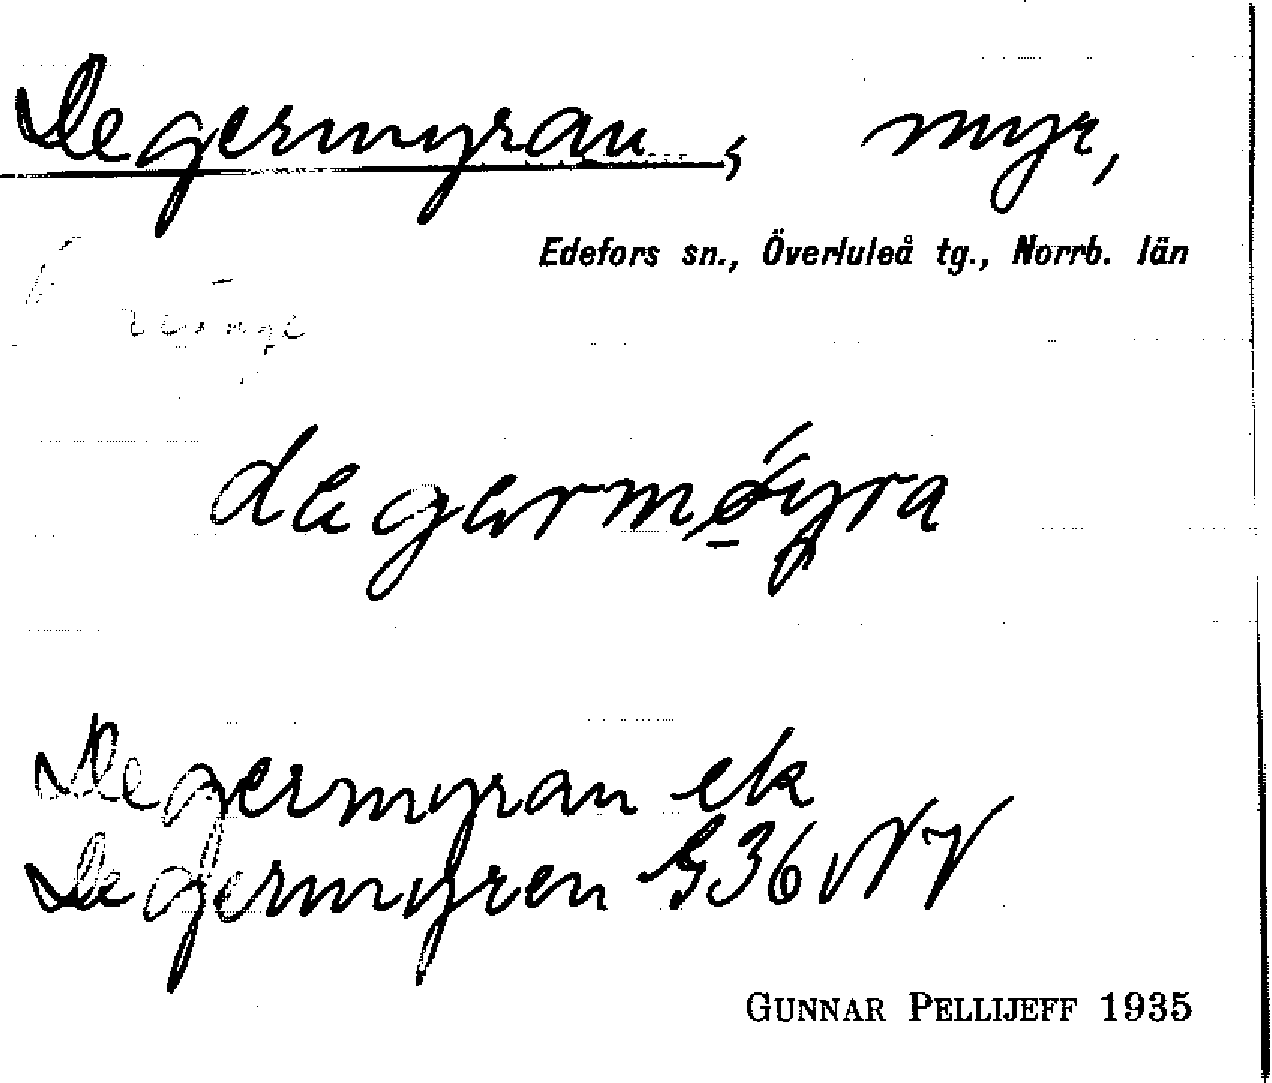 Degermyran, myr,
Edefors sn., Överluleå tg., Norrb. län
dægærmøyra
Degermyran ek
Degermyren G36 NV
GUNNAR PELLIJEFF 1935